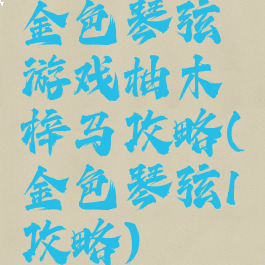 金色琴弦
游戏柚木
梓马攻略(
金色琴弦1
攻略)